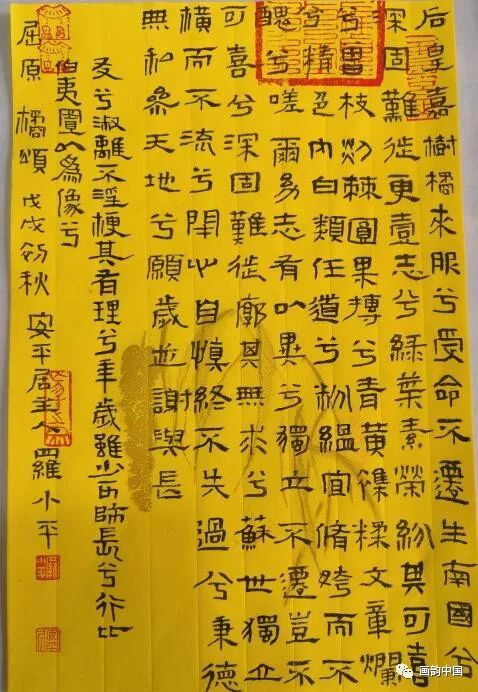 后皇嘉樹橘來服兮受命不遷生南國兮
深固難徙更壹志兮綠葉素榮紛其可喜
兮曾枝剡棘圓果摶兮青黃雜糅文章爛
兮精色內白類任道兮紛縕宜脩姱而不
醜兮嗟爾幼志有以異兮獨立不遷豈不
可喜兮深固難徙廓其無求兮蘇世獨立
橫而不流兮閉心自慎終不失過兮秉德
無私參天地兮願歲並謝與長
友兮淑離不淫梗其有理兮年歲雖少可師長兮行比
伯夷置以為像兮
屈原 橘頌 戊戌初秋 安平居主人 羅小平
画韵中国